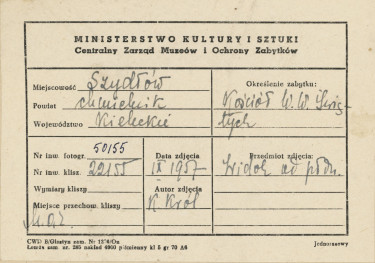 MINISTERSTWO KULTURY I SZTUKI
Centralny Zarząd Muzeów i Ochrony Zabytków
Miejscowość Szydłów
Powiat chmielnik
Województwo Kieleckie
Określenie zabytku:
Kościół W.W. Świę-
tych
Nr inw. fotogr. 50155
Nr inw. klisz. 22155
Wymiary kliszy
Miejsce przechow. kliszy
Data zdjęcia
IX 1957
Autor zdjęcia
K. Król
Przedmiot zdjęcia:
Widok od płdn.
CWD Zam. Nr
Lenom zam. nr. 295 nakład 4960 piśmienny kl 5 gr 70 A6
Jednorazowy